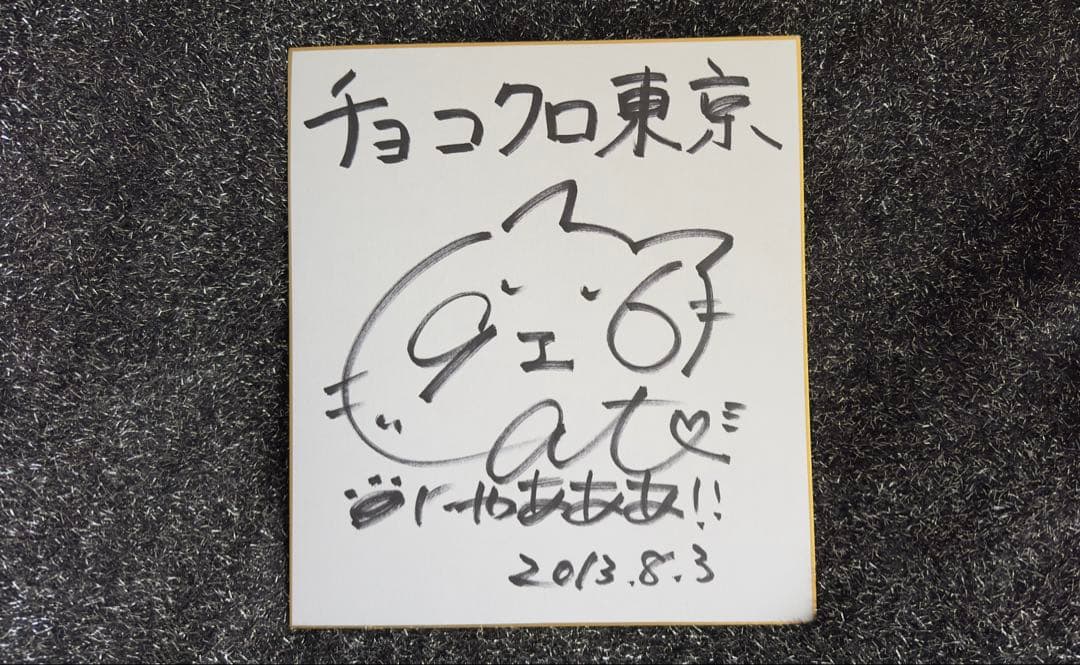 チョコクロ東京
96
Cat
にゃああああ!!
2013.8.3